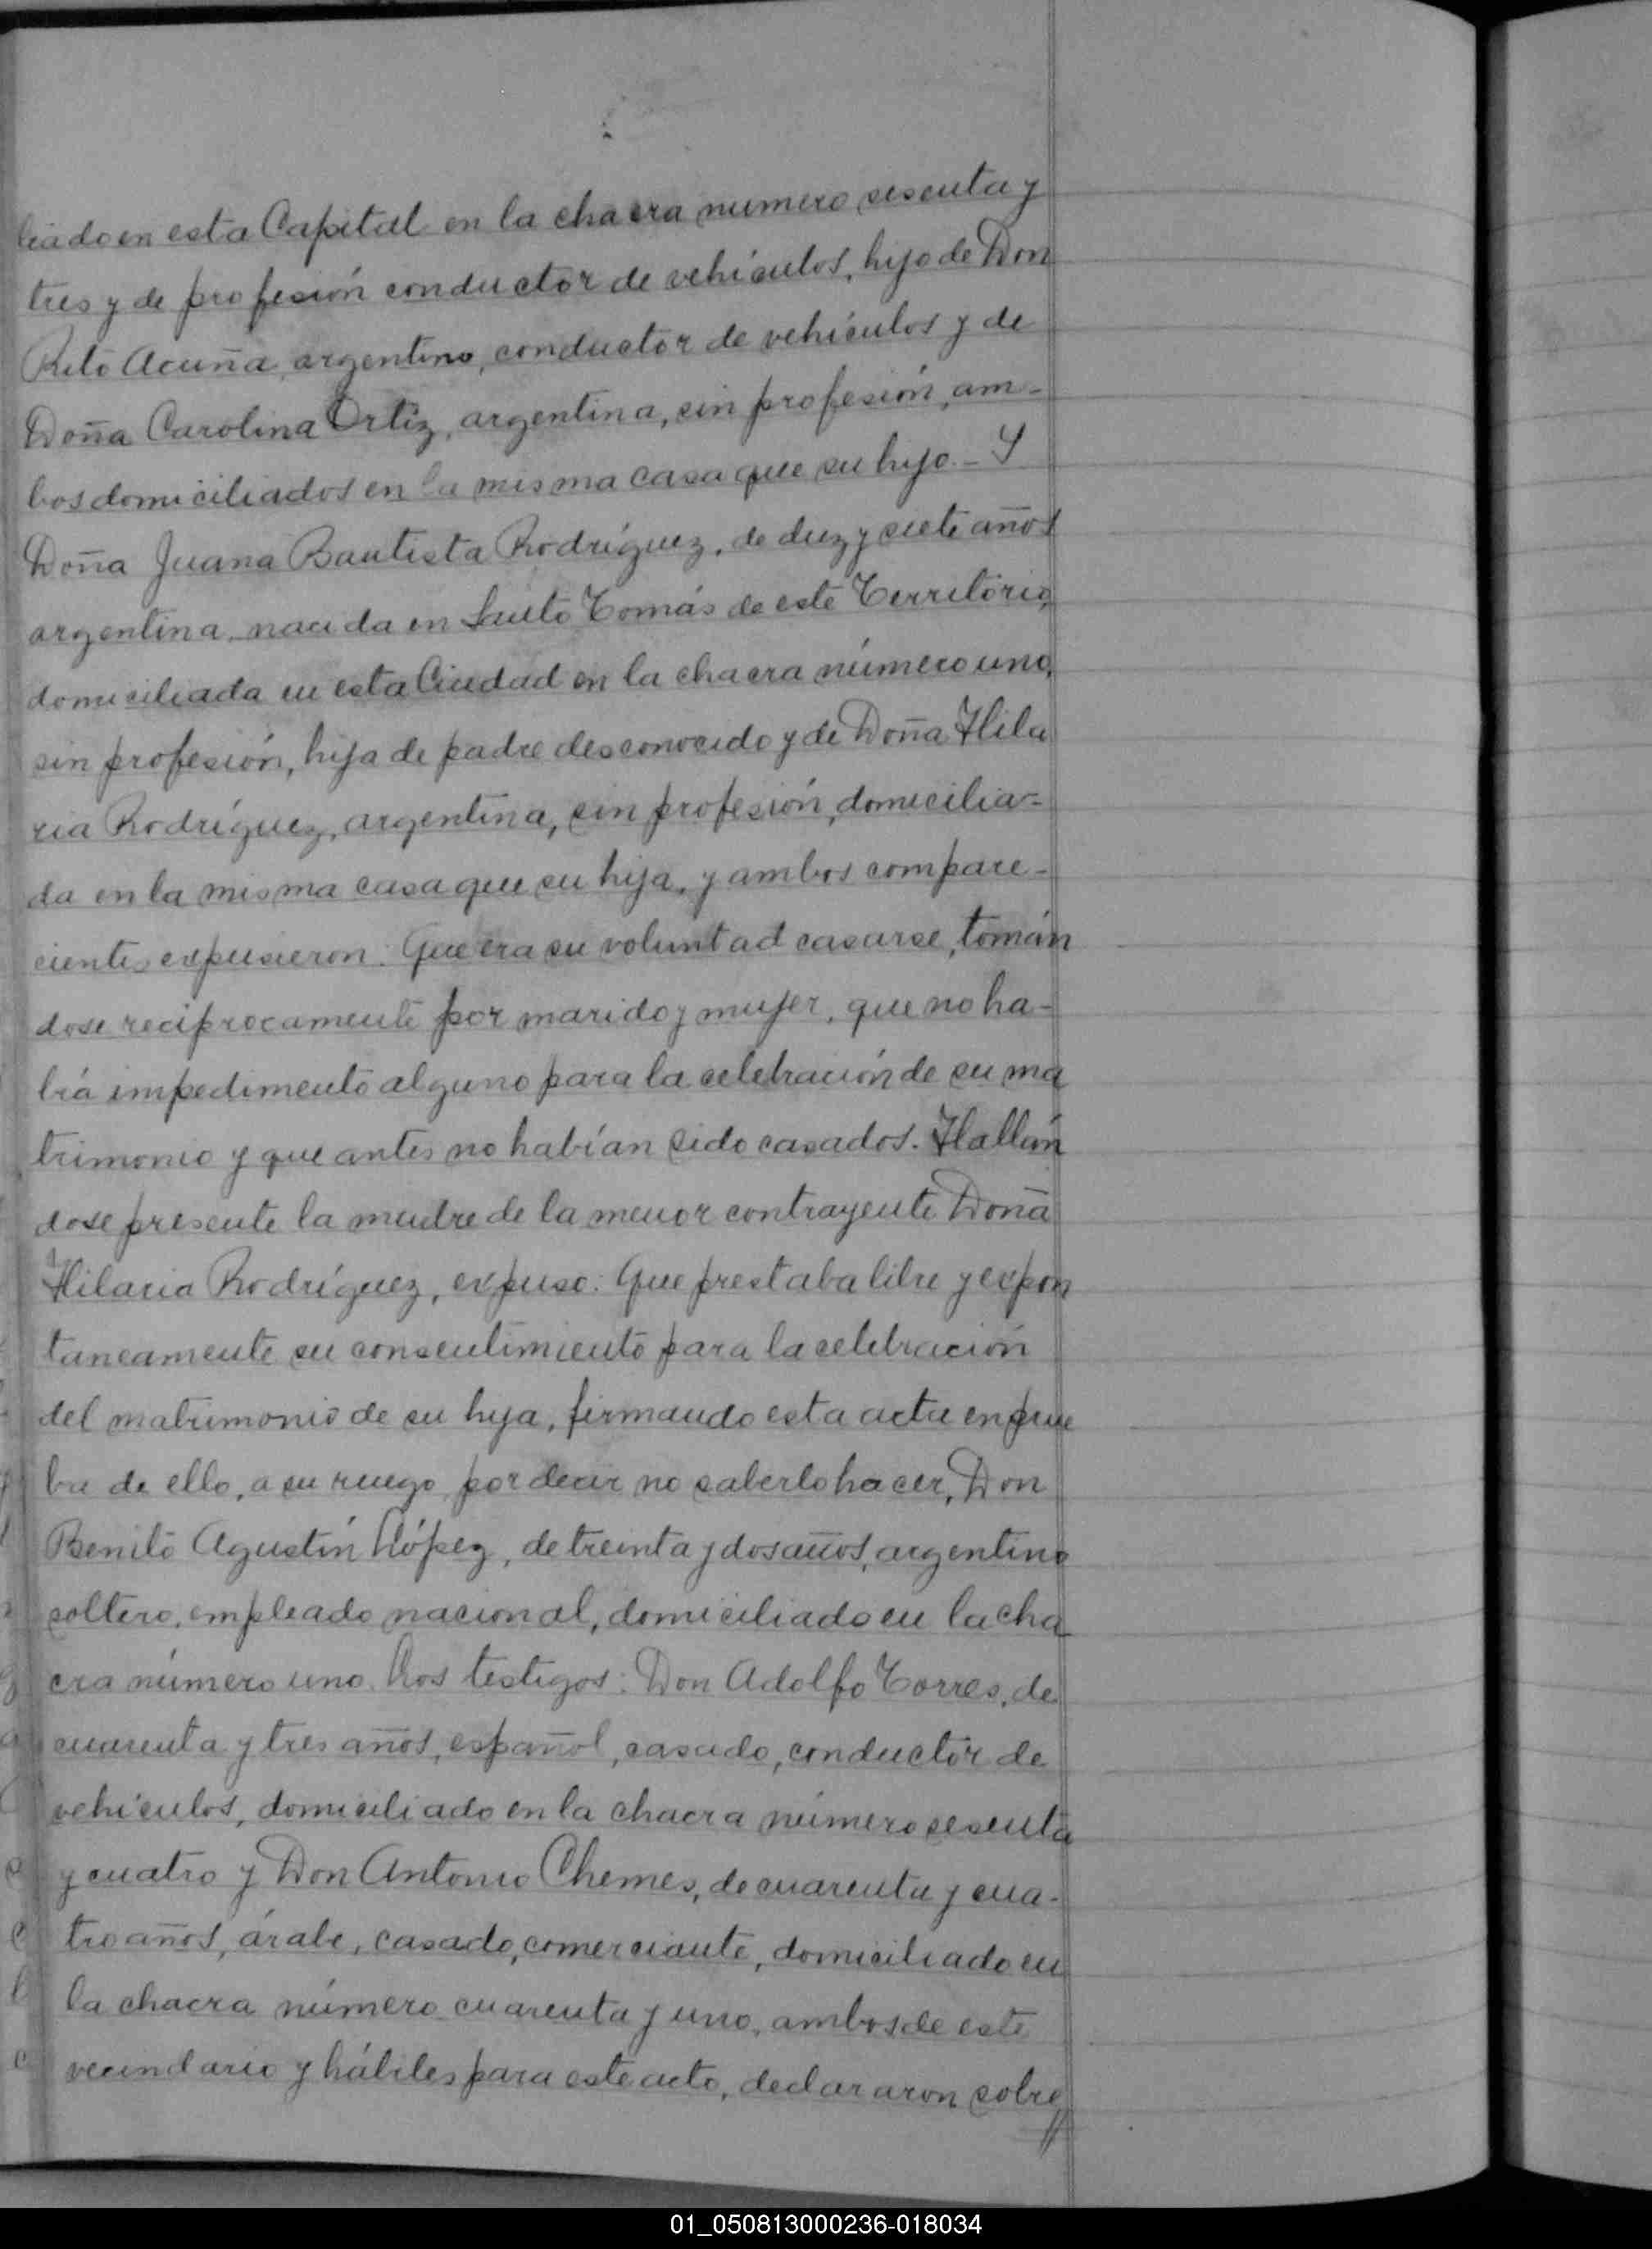 liado en esta Capital en la chacra numero sesenta y
tres y de profesión conductor de vehículos, hijo de Don
Rito Acuña, argentino, conductor de vehículos y de
Doña Carolina Ortiz, argentina, sin profesión, am-
bos domiciliados en la misma casa que su hijo.- Y
Doña Juana Bautista Rodríguez, de diez y siete años
argentina, nacida en Santo Tomás de este Territorio,
domiciliada en esta Ciudad en la chacra número uno,
sin profesión, hija de padre desconocido y de Doña Hila
ria Rodríguez, argentina, sin profesión, domicilia-
da en la misma casa que su hija, y ambos compare-
cientes expusieron: Que era su voluntad casarse, tomán
dose reciprocamente por marido y mujer, que no ha-
bía impedimento alguno para la celebración de su ma
trimonio y que antes no habían sido casados. Hallán
dose presente la madre de la menor contrayente Doña
Hilaria Rodríguez, expuso: Que prestaba libre y expon
taneamente su consentimiento para la celebración
del matrimonio de su hija, firmando esta acta en prue
ba de ello, a su ruego por decir no saberlo hacer, Don
Benito Agustín López, de treinta y dos años, argentino
soltero, empleado nacional, domiciliado en la cha
cra número uno. Los testigos: Don Adolfo Torres, de
cuarenta y tres años, español, casado, conductor de
vehículos, domiciliado en la chacra número sesenta
y cuatro y Don Antonio Chemes, de cuarenta y cua-
tro años, árabe, casado, comerciante, domiciliado en
la chacra número cuarenta y uno, ambos de este
vecindario y hábiles para este acto, declararon sobre
//
01_050813000236-018034